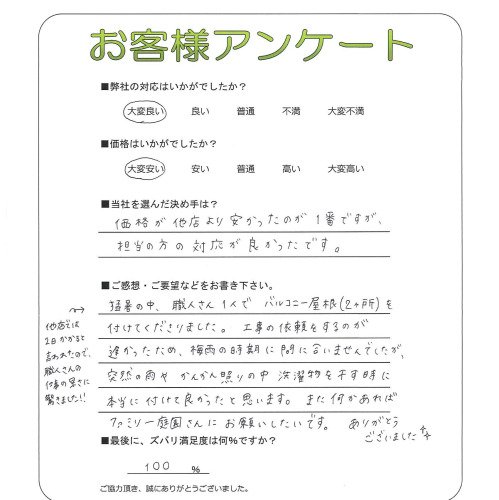 お客様アンケート
■弊社の対応はいかがでしたか？
大変良い 良い 普通 不満 大変不満
■価格はいかがでしたか？
大変安い 安い 普通 高い 大変高い
■当社を選んだ決め手は？
価格が他店より安かったのが1番ですが、
担当の方の対応が良かったです。
■ご感想・ご要望などをお書き下さい。
猛暑の中、職人さん1人でバルコニー屋根(2ヶ所)を
付けてくださりました。工事の依頼をするのが
遅かったため、梅雨の時期に間に合いませんでしたが、
突然の雨やかんかん照りの中洗濯物を干す時に
本当に付けて良かったと思います。また何かあれば
ファミリー庭園さんにお願いしたいです。ありがとう
ございました
他店では
2日かかると
言われたので、
職人さんの
仕事の早さに
驚きました!!
■最後に、ズバリ満足度は何%ですか？
100 %
ご協力頂き、誠にありがとうございました。